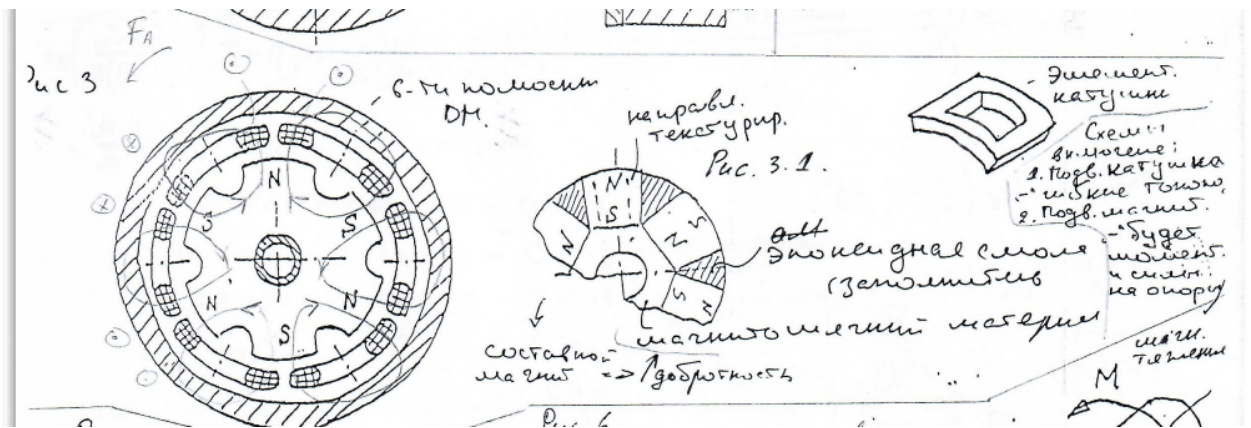 FА
Рис 3
6-ти полюсный
ДМ.
N
S
S
N
N
S
направл.
текстурир.
Рис. 3.1.
N
S
N
S
N
S
N
эпоксидная смола
(заполнитель
магнитомягкий материал
составной
магнит => ↑добротность
Элемент.
катушки
Схемы
включение:
1. Подв. катушка
- гибкие токопо,
2. Подв. магнит.
- будет
момент.
и силы:
на опоры
магн.
тяжения
M
Рис 6